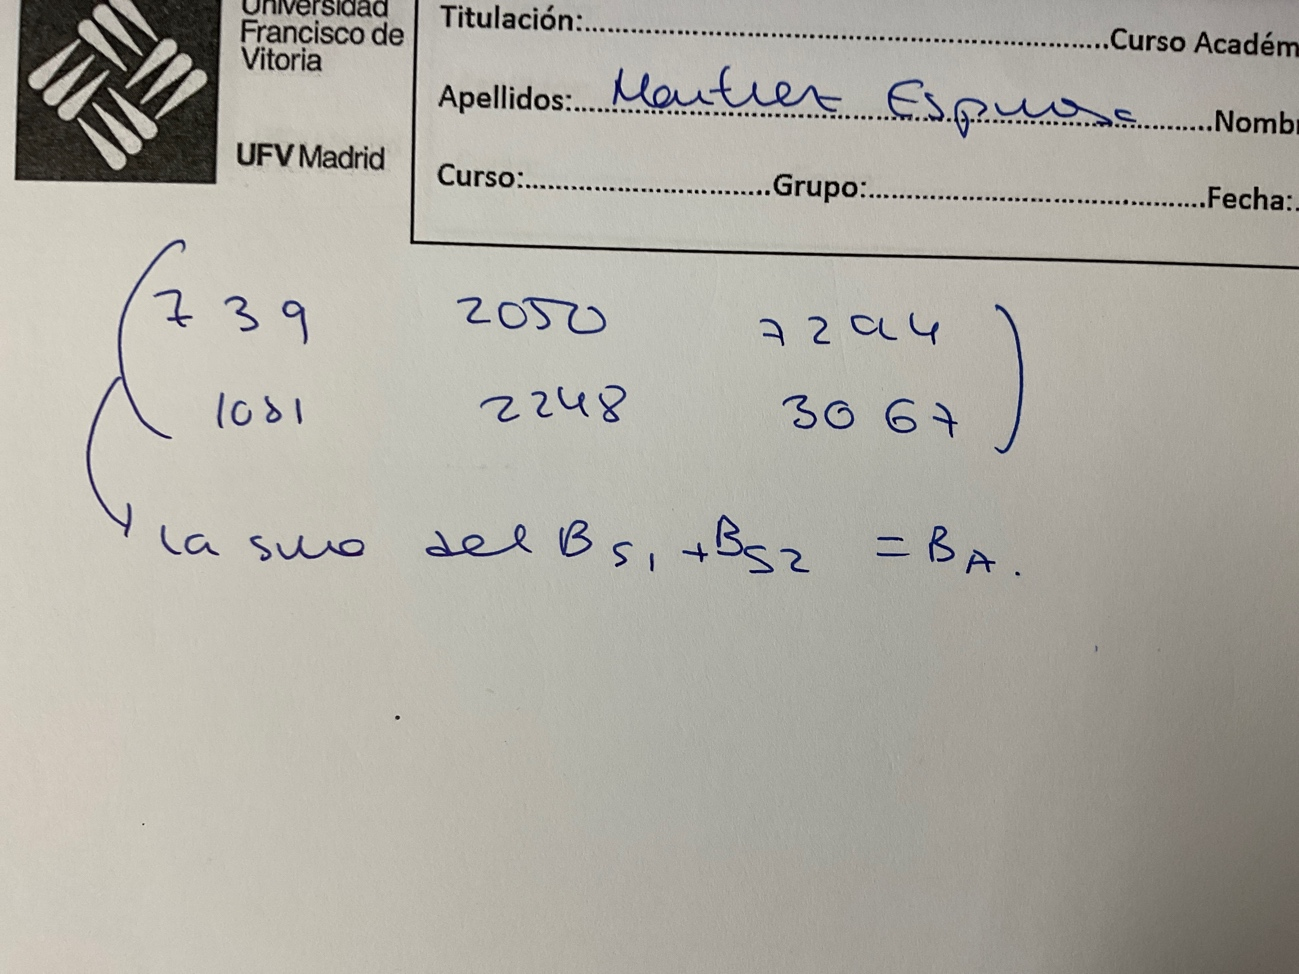 Universidad
Francisco de
Vitoria
UFV Madrid
Titulación:.....Curso Académ
Apellidos:..... Espinosa .....Nomb
Curso:.....Grupo:.....Fecha:.
739 2050 7294
1081 2248 3067
La suma del BS1 + BS2 = BA.